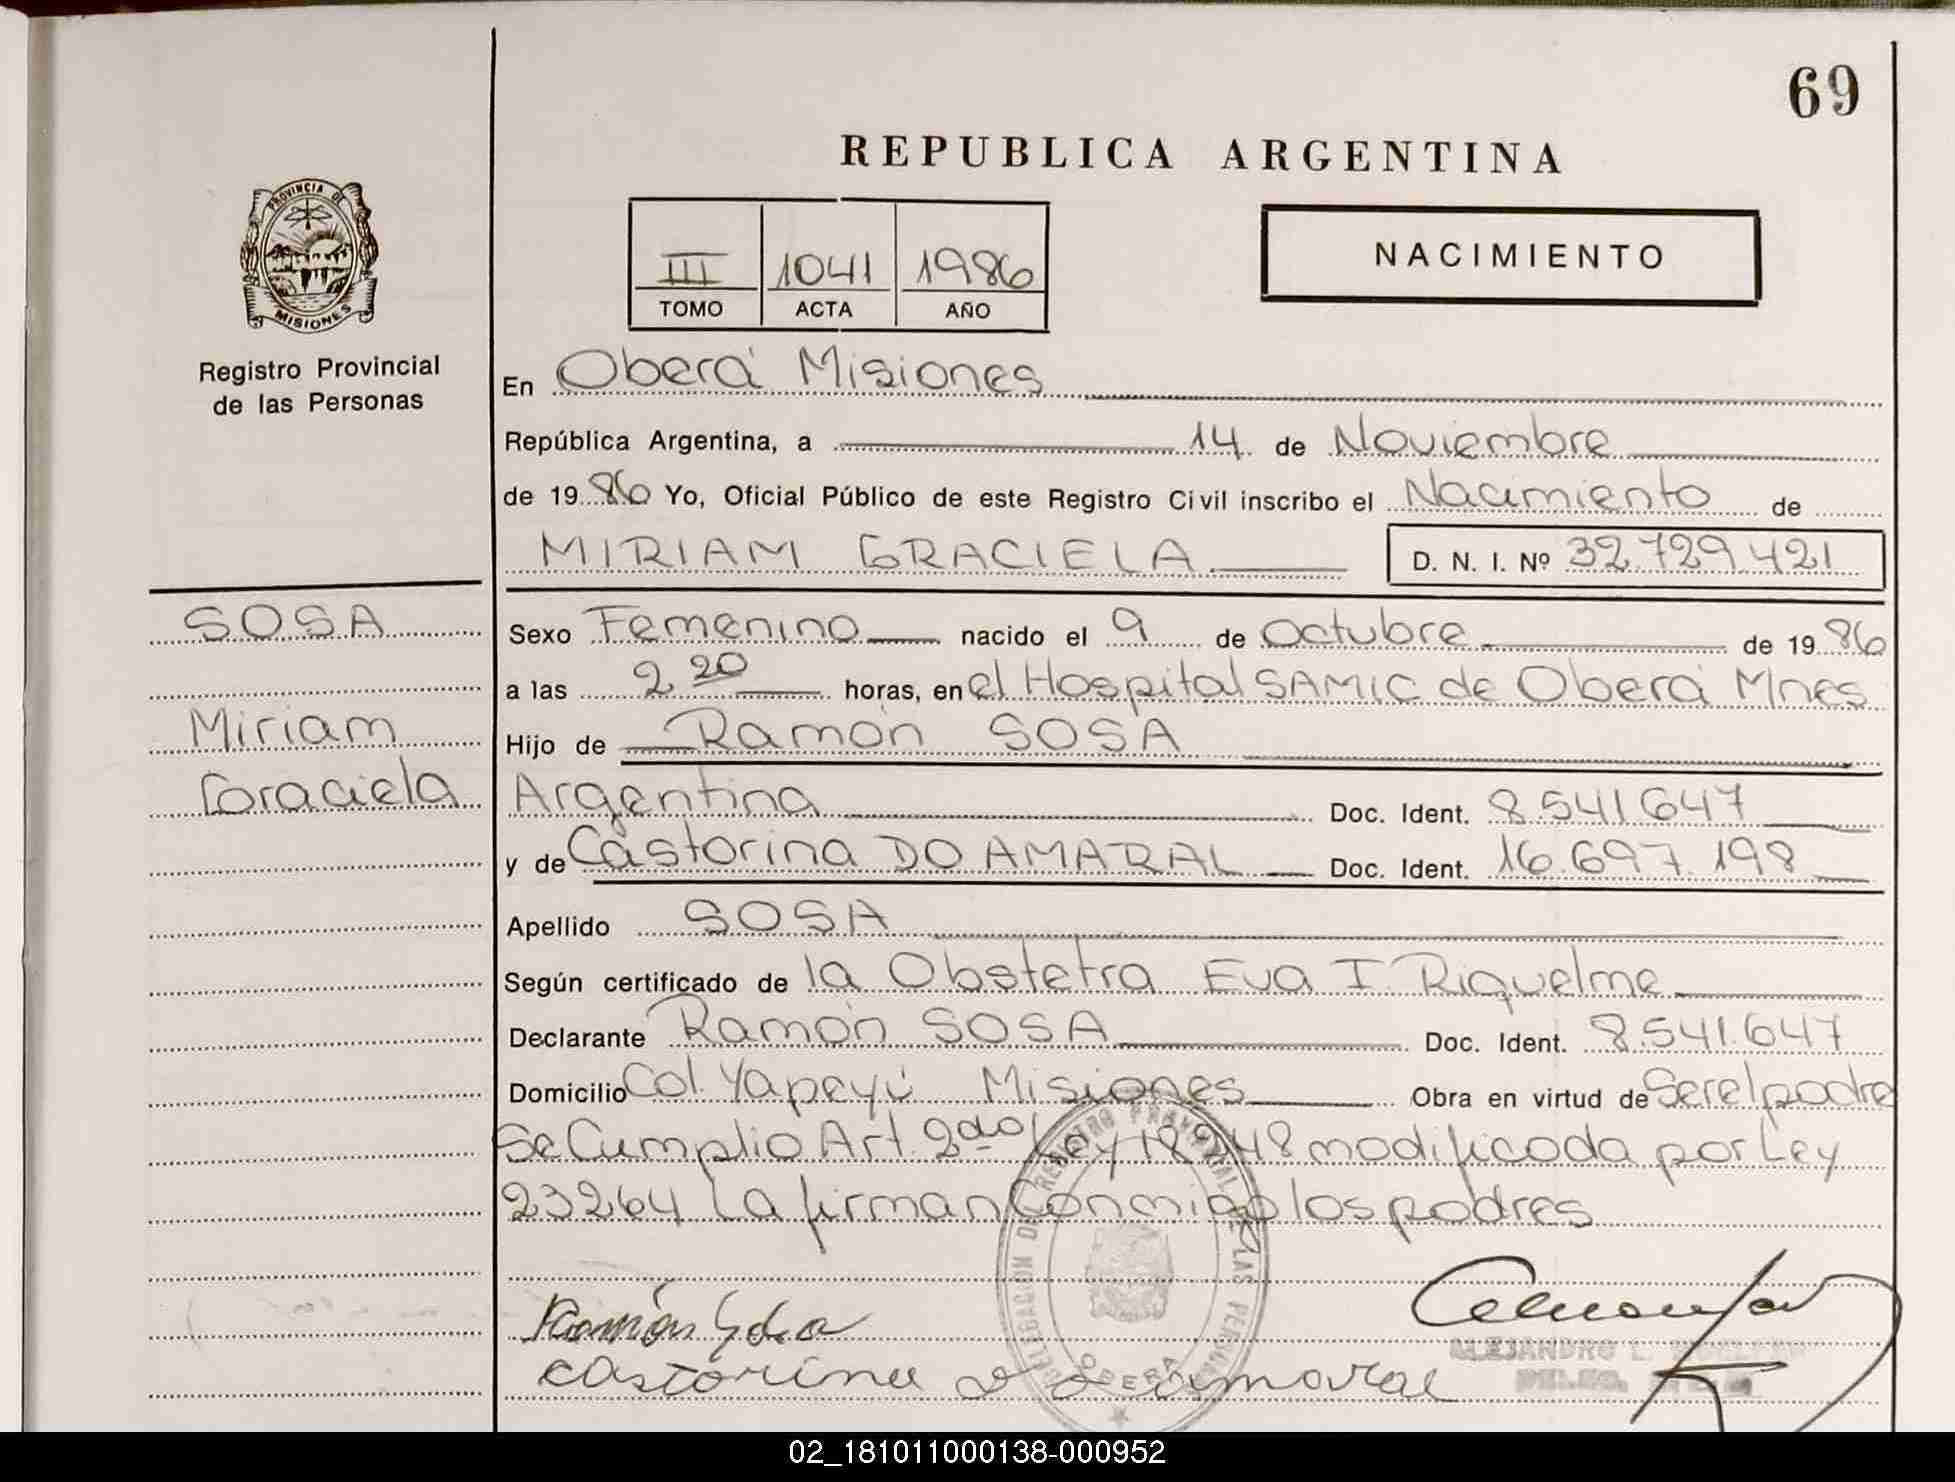 69
REPUBLICA ARGENTINA
PROVINCIA DE
MISIONES
Registro Provincial
de las Personas
III 1041 1986
TOMO ACTA AÑO
NACIMIENTO
En Oberá Misiones
República Argentina, a 14 de Noviembre
de 1986 Yo, Oficial Público de este Registro Civil inscribo el Nacimiento de
MIRIAM GRACIELA D. N. I. Nº 32.729.421
SOSA
Miriam
Graciela
Sexo Femenino nacido el 9 de Octubre de 1986
a las 2 20 horas, en el Hospital SAMIC de Oberá Mnes
Hijo de Ramón SOSA
Argentina Doc. Ident. 8.541.647
y de Castorina DO AMARAL Doc. Ident. 16.697.198
Apellido SOSA
Según certificado de la Obstetra Eva I. Riquelme
Declarante Ramón SOSA Doc. Ident. 8.541.647
Domicilio Col. Yapeyú Misiones Obra en virtud de Ser el padre
Se Cumplio Art. 2do Ley 18248 modificada por Ley
23264 La firman Conmigo los padres
Ramón Sosa
castorina do amaral
DELEGACION DEL REGISTRO PROVINCIAL DE LAS PERSONAS
OBERA
ALEJANDRO L.
02_181011000138-000952